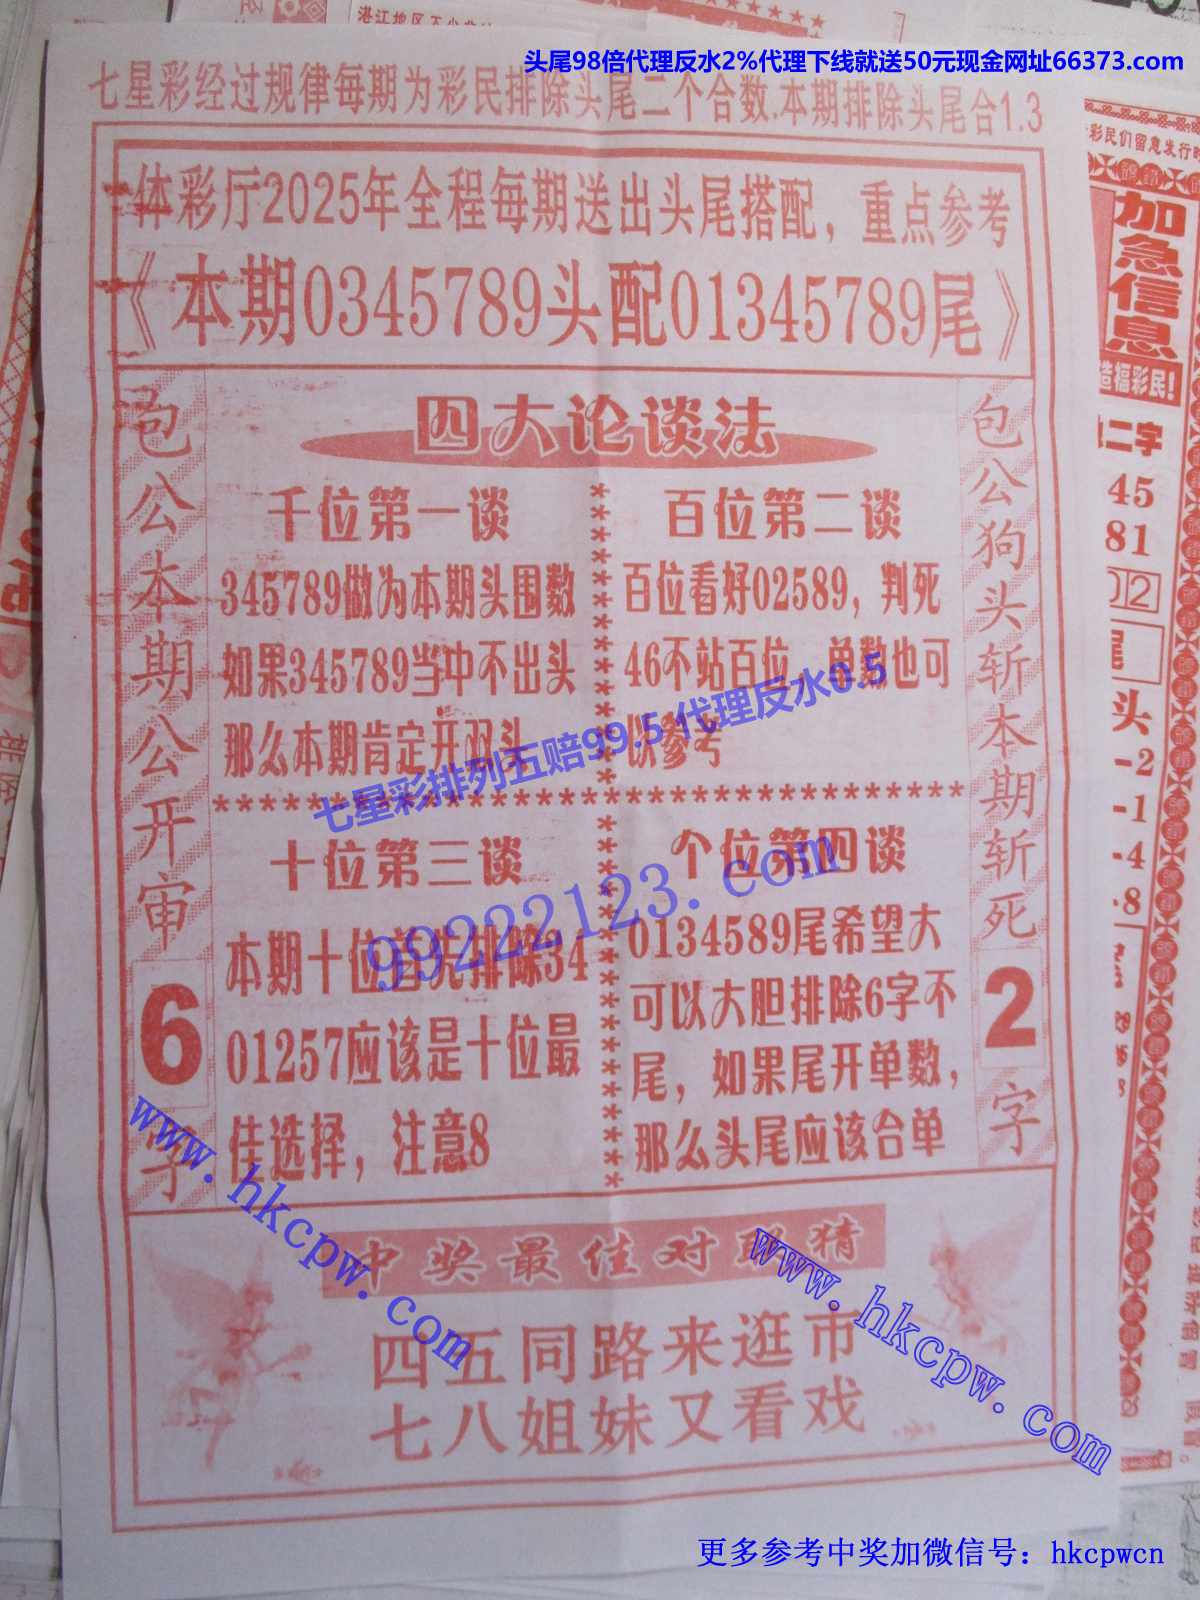 湛江地区不少彩
头尾98倍代理反水2%代理下线就送50元现金网址66373.com
七星彩经过规律每期为彩民排除头尾二个合数.本期排除头尾合1.3
体彩厅2025年全程每期送出头尾搭配，重点参考
《本期0345789头配01345789尾》
包公本期公开审
6
字
四大论谈法
千位第一谈
345789做为本期头围数
如果345789当中不出头
那么本期肯定开双头
百位第二谈
百位看好02589，判死
46不站百位，单数也可
以参考
七星彩排列五赔99.5 代理反水0.5
************************************
十位第三谈
本期十位首先排除34
01257应该是十位最
佳选择，注意8
99222123.com
个位第四谈
0134589尾希望大
可以大胆排除6字不
尾，如果尾开单数，
那么头尾应该合单
包公狗头斩本期斩死
2
字
www.hkcpw.com
www.hkcpw.com
中奖最佳对联猜
四五同路来逛市
七八姐妹又看戏
彩民们留意发行时
加急信息
造福彩民!
二字
45
81
02
尾
头
-2
-1
-4
-8
更多参考中奖加微信号：hkcpwcn